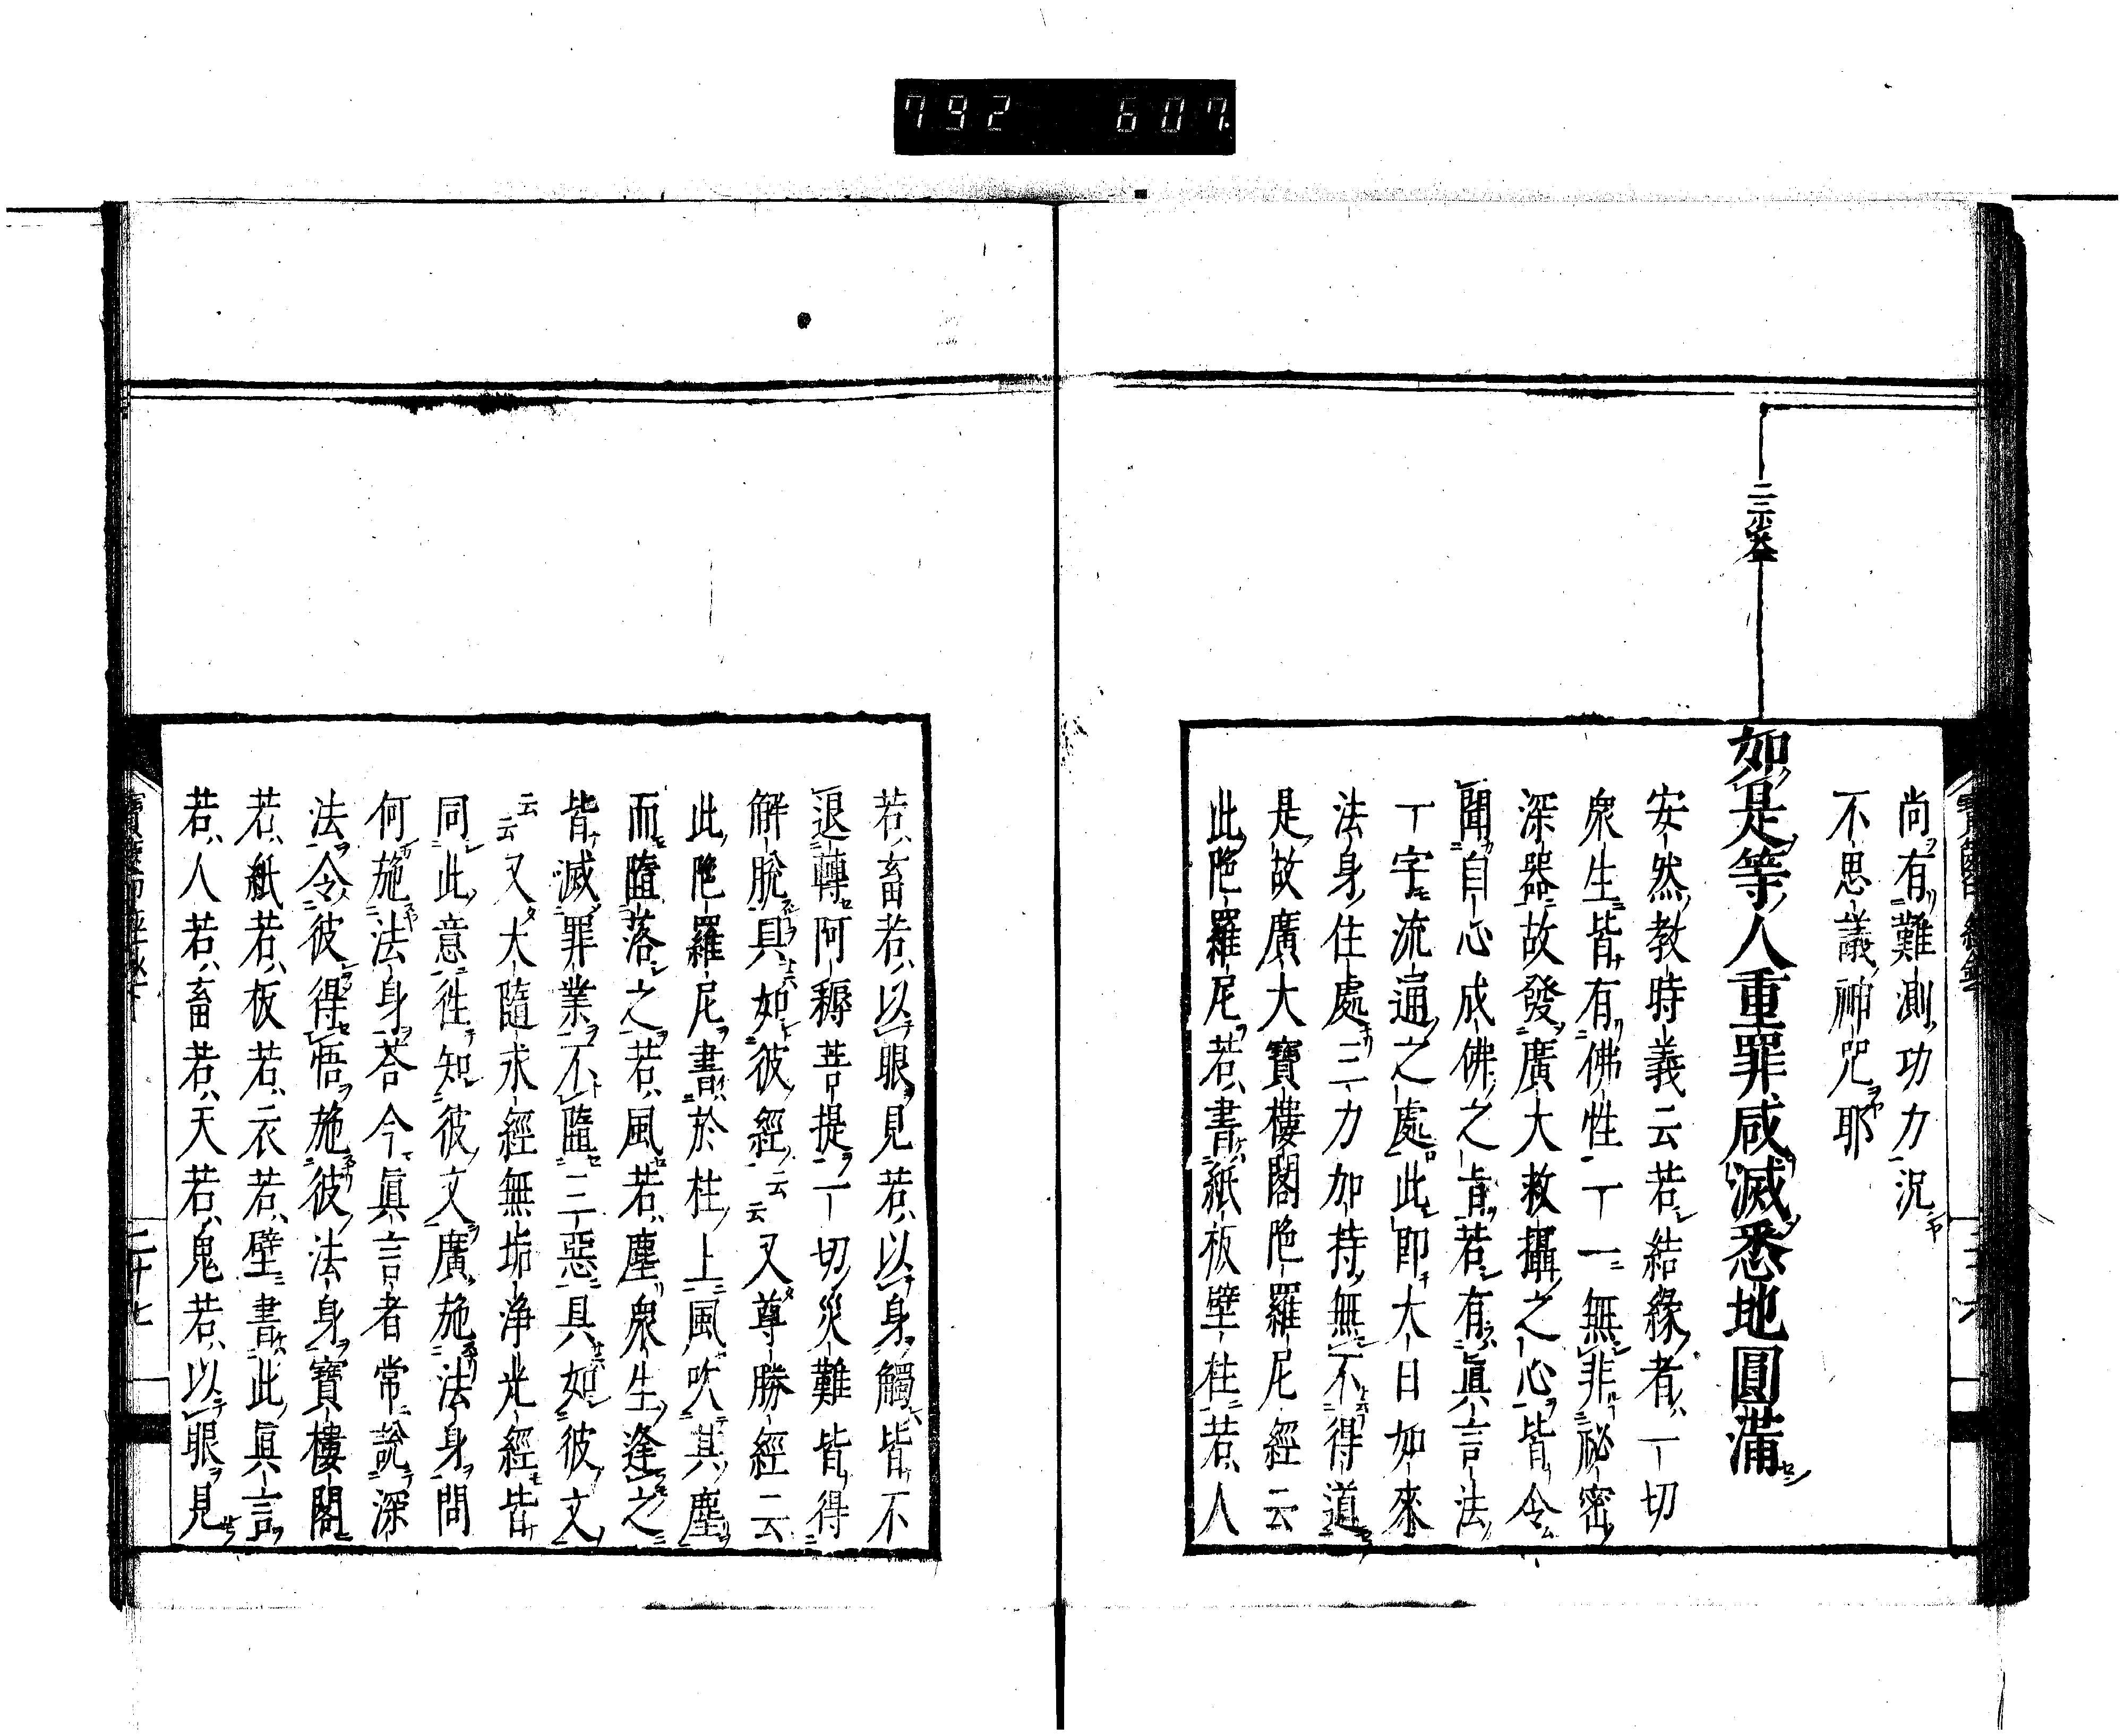 792 607
尚有難測功力況
不思議神咒耶
二示益
如是等人重罪咸滅悉地圓滿
安然教時義云若結緣者一切
衆生皆有佛性一一無非祕密
深器故發廣大救攝之心皆令
聞自心成佛之旨若有眞言法
一字流遍之處此即大日如來
法身住處三力加持無不得道
是故廣大寶樓閣陁羅尼經云
此陁羅尼若書紙板壁柱若人
若畜若以眼見若以身觸皆不
退轉阿耨菩提一切災難皆得
解脫具如彼經云云又尊勝經云
此陁羅尼書於柱上風吹其塵
而墮落之若風若塵衆生逢之
皆滅罪業不墮三惡具如彼文
云云又大隨求經無垢淨光經皆
同此意往知彼文廣施法身問
何施法身荅今眞言者常說深
法令彼得悟施彼法身寶樓閣
若紙若板若衣若壁書此眞言
若人若畜若天若鬼若以眼見
二十七